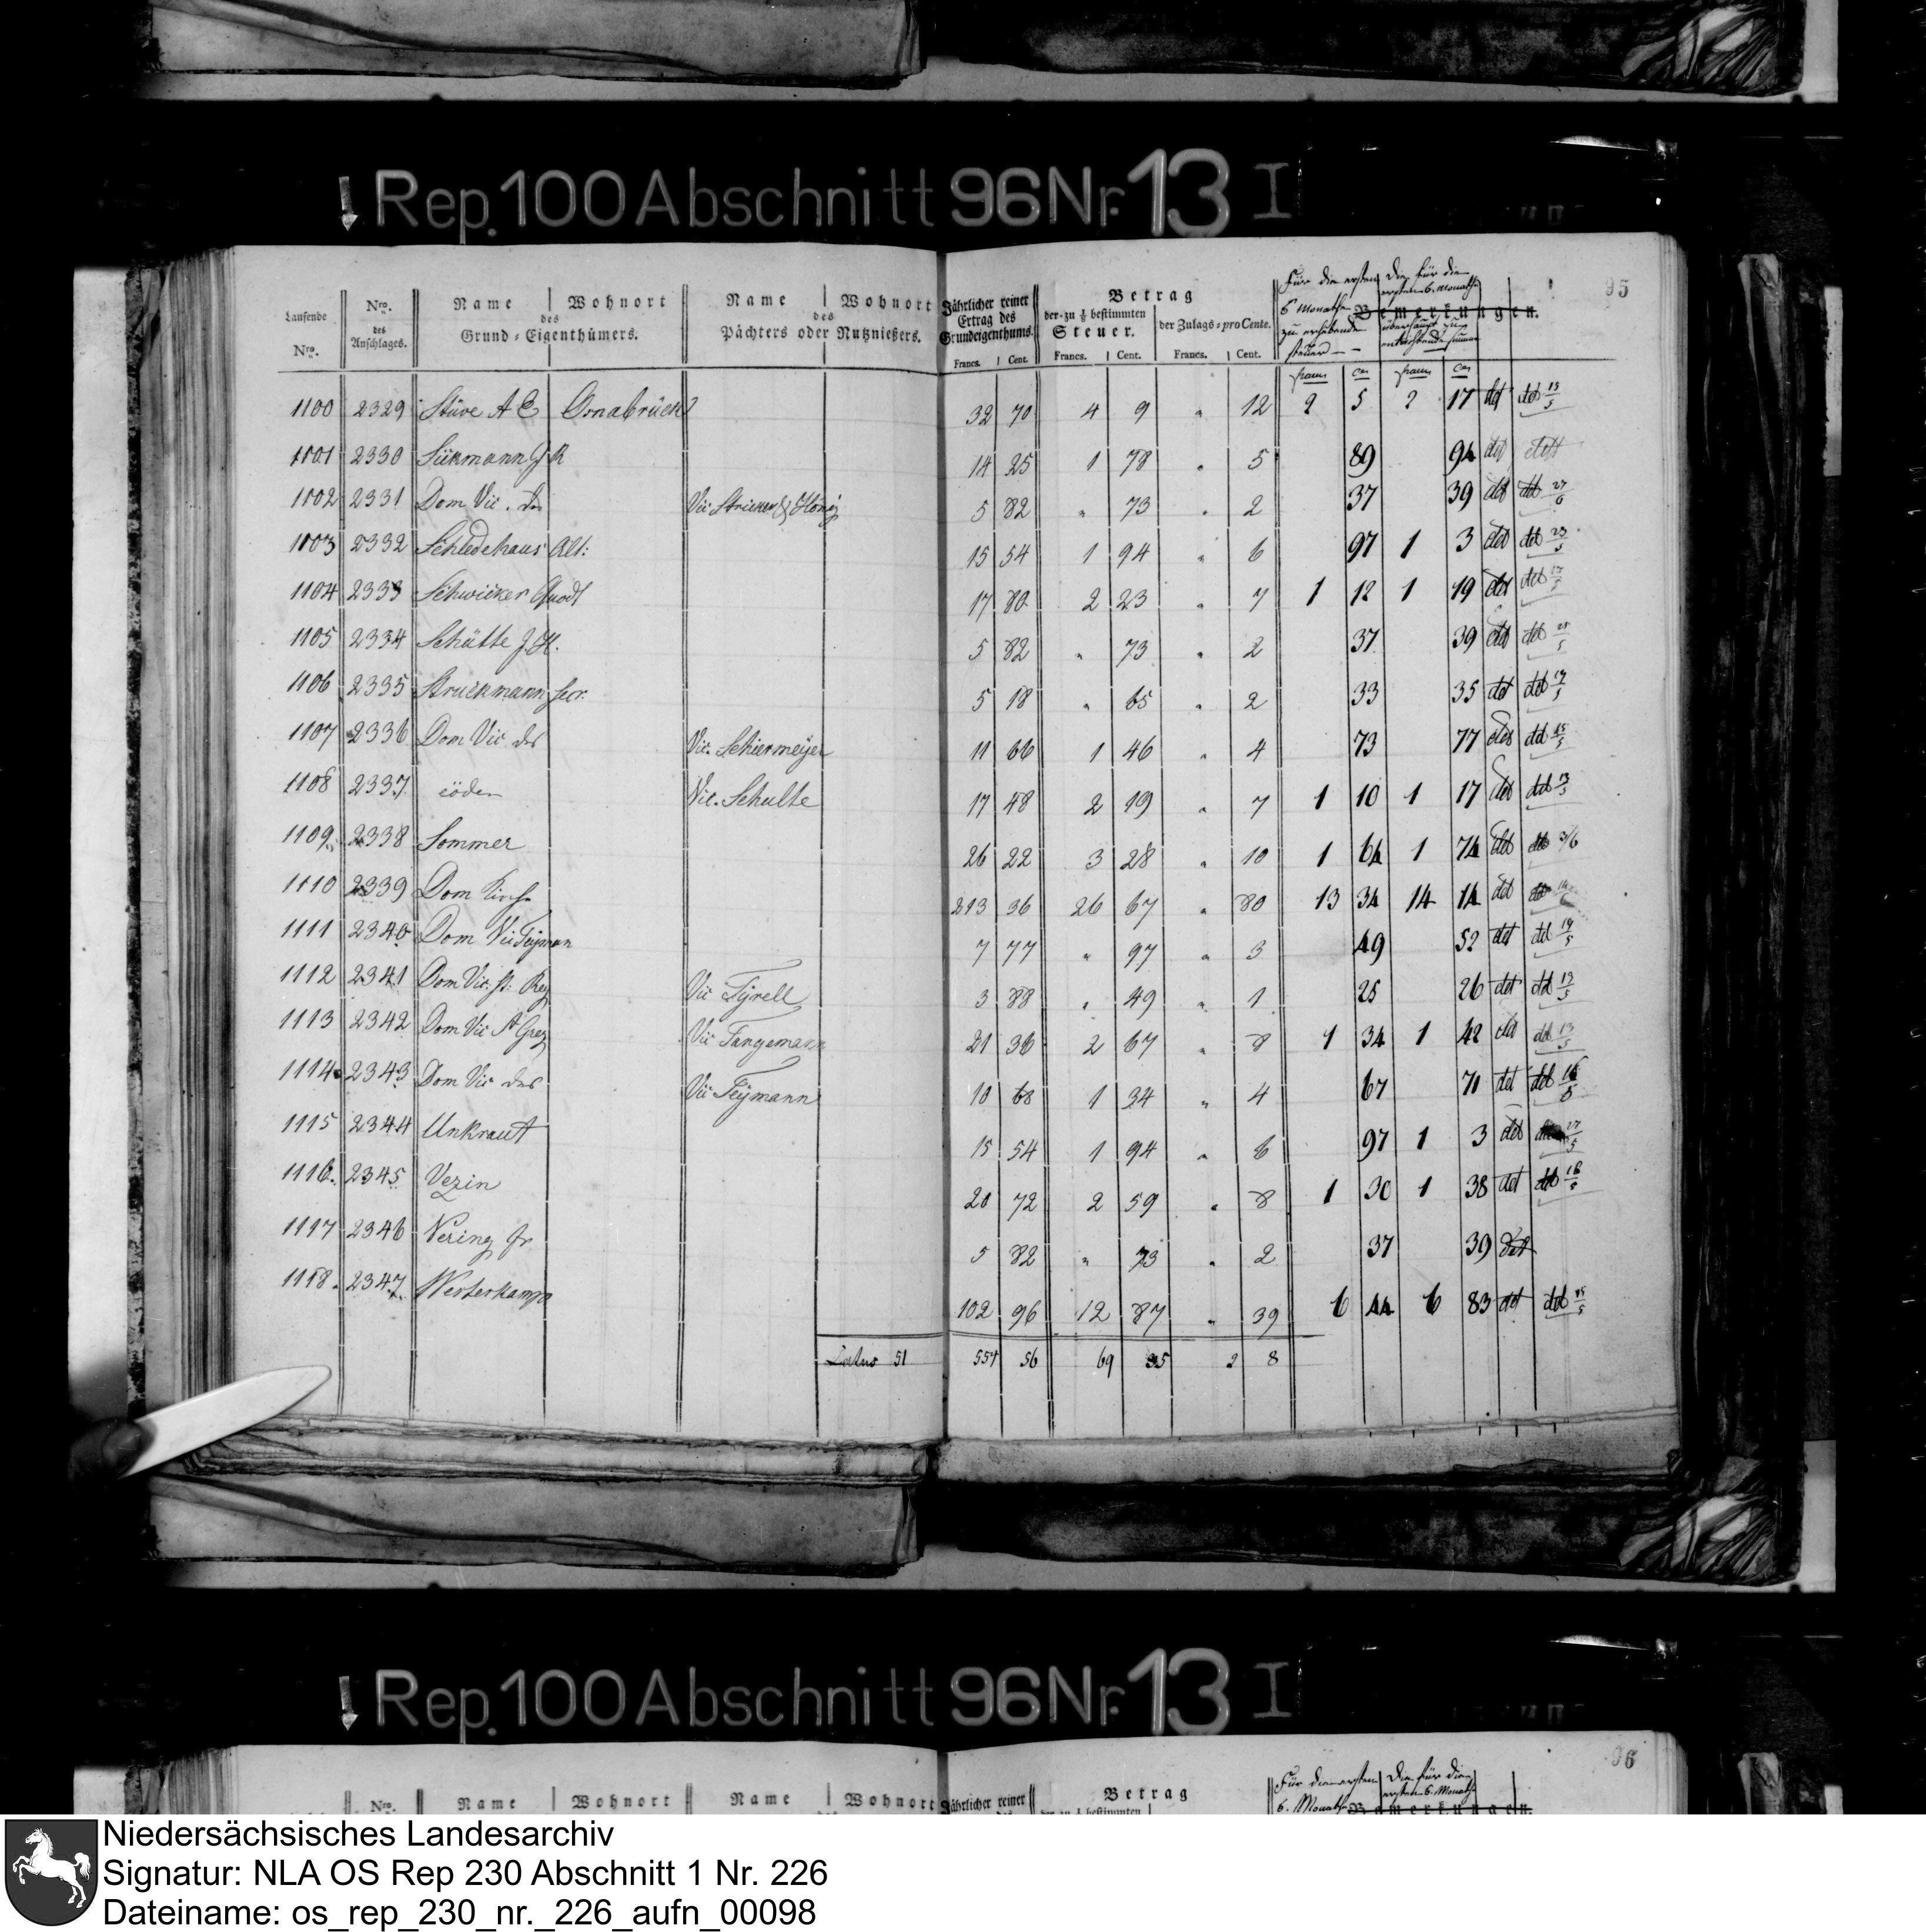 Rep. 100 Abschnitt 96 Nr. 13 I
95
Laufende Nro.
Nro. des Anschlages.
Name | Wohnort
des
Grund-Eigenthümers.
Name | Wohnort
des
Pächters oder Nutznießers.
Jährlicher reiner Ertrag des Grundeigenthums.
Francs. | Cent.
Betrag
der zu 1/8 bestimmten Steuer.
Francs. | Cent.
der Zulags=pro Cente.
Francs. | Cent.
Für die ersten 6 Monathe zu erhebende Steuer
Die für die ersten 6. Monathe überhaupt zu entrichtende Summe
Bemerkungen.
franc cen franc cen
1100 2329 Stüve A E Osnabrück 32 70 4 9 " 12 2 5 2 17 det det 13/5
1101 2330 Sükmann J R 14 25 1 78 " 5 89 94 det
1102 2331 Dom Vic. des Vic Stricker & Honig 5 82 " 73 " 2 37 39 det det 27/6
1103 2332 Schledehaus Alt: 15 54 1 94 " 6 97 1 3 det det 23/5
1104 2333 Schwicker Quodt 17 80 2 23 " 7 1 12 1 19 det det 17/5
1105 2334 Schütte J. H. 5 82 " 73 " 2 37 39 det det
1106 2335 Struckmann Secr. 5 18 " 65 " 2 33 35 det det 17/5
1107 2336 Dom Vic. des Vic. Schiermeyer 11 66 1 46 " 4 73 77 det det 15/5
1108 2337 iöden Vic. Schulte 17 48 2 19 " 7 1 10 1 17 det det 13/5
1109 2338 Sommer 26 22 3 28 " 10 1 64 1 74 det det 3/6
1110 2339 Dom Kirche 213 36 26 67 " 80 13 34 14 14 det det
1111 2340 Dom Vic Teymann 7 77 " 97 " 3 49 52 det det 19/5
1112 2341 Dom Vic. st: Reg Vic Tyrell 3 88 " 49 " 1 25 26 det det 13/5
1113 2342 Dom Vic St Greg Vic Tangemann 21 36 2 67 " 8 1 34 1 42 det det 13/5
1114 2343 Dom Vic des Vic Teymann 10 68 1 34 " 4 67 71 det det 16/5
1115 2344 Unkraut 15 54 1 94 " 6 97 1 3 det 27/5
1116. 2345 Vezin 20 72 2 59 " 8 1 30 1 38 det det 16/5
1117 2346 Vezing Jr 5 82 " 73 " 2 37 39 det
1118. 2347 Westerkamp 102 96 12 87 " 39 6 44 6 83 det det 15/5
Latus 51 557 56 69 35 2 8
Rep. 100 Abschnitt 96 Nr. 13 I
96
Nro. Name | Wohnort Name | Wohnort Jährlicher reiner Betrag
Für die ersten 6. Monathe
Die für die ersten 6. Monath
Bemerkungen.
Niedersächsisches Landesarchiv
Signatur: NLA OS Rep 230 Abschnitt 1 Nr. 226
Dateiname: os_rep_230_nr._226_aufn_00098